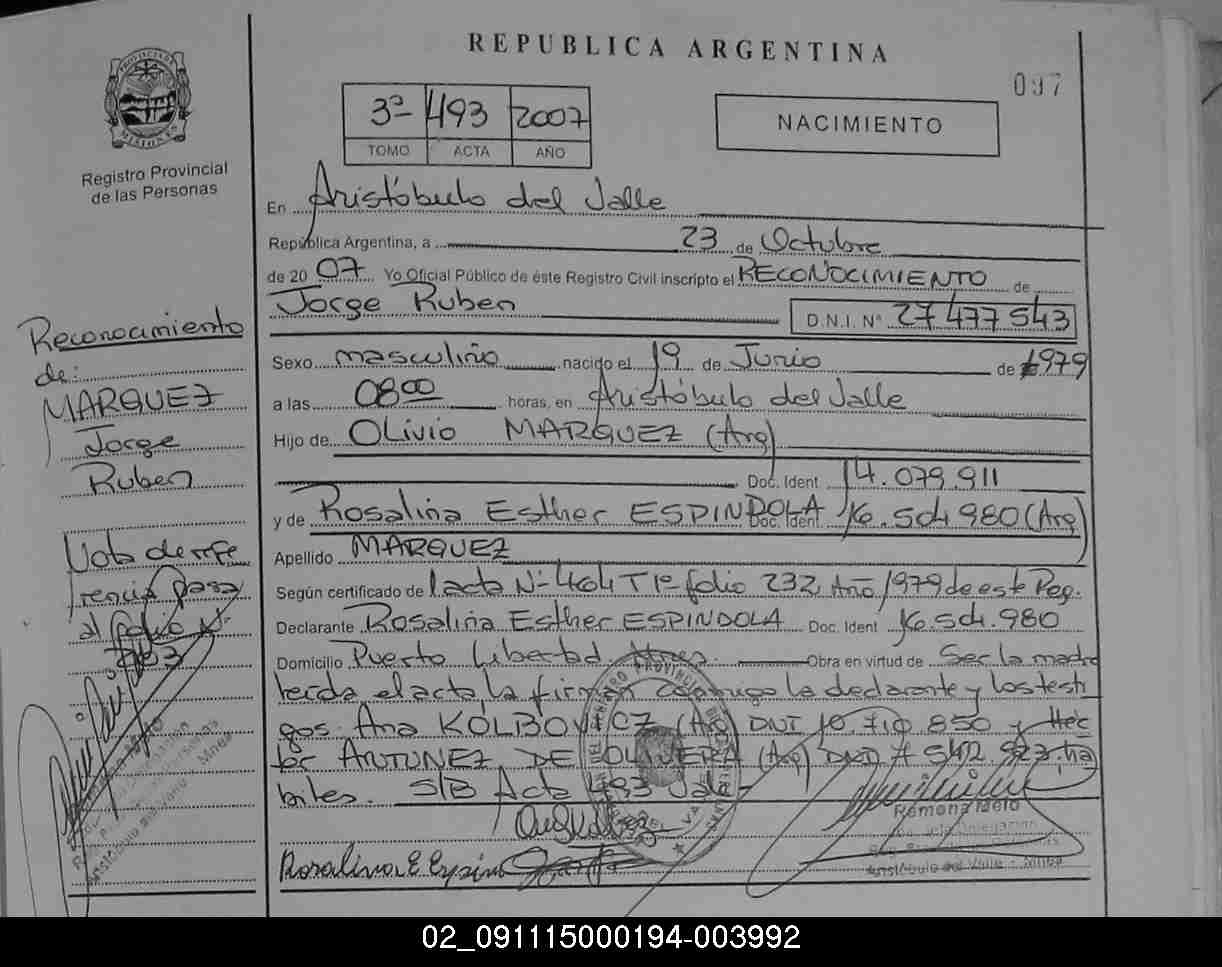 REPUBLICA ARGENTINA
097
PROVINCIA DE MISIONES
Registro Provincial
de las Personas
3ª 493 2007
TOMO ACTA AÑO
NACIMIENTO
En Aristóbulo del Valle
República Argentina, a 23 de Octubre
de 2007 Yo Oficial Público de éste Registro Civil inscripto el RECONOCIMIENTO de
Jorge Ruben D.N.I. Nº 27477543
Sexo masculino nacido el 19 de Junio de 1979
a las 08 00 horas, en Aristóbulo del Valle
Hijo de OLIVIO MARQUEZ (Arg)
Doc. Ident 14.079.911
y de Rosalina Esther ESPINDOLA Doc. Ident 16.504.980 (Arg)
Apellido MARQUEZ
Según certificado de 1acta Nº 464 Tº 1º folio 232 Año 1979 de este Reg.
Declarante Rosalina Esther ESPINDOLA Doc. Ident 16.504.980
Domicilio Puerto Libertad Mnes. Obra en virtud de Ser la madre
leída el acta la firman conmigo la declarante y los testi
gos: Ana KOLBOVICZ (Arg) DNI 10.710.850 y Héc
tor ANTUNEZ DE OLIVERA (Arg) DNI 7.542.923 ha
biles. S/B Acta 493 Vale-
Rosalina E Espin
Ramona Melo
Aristóbulo del Valle - Mnes
Reconocimiento
de:
MARQUEZ
Jorge
Ruben
Nota de refe
rencia pasa
al folio Nº
Aristóbulo del Valle Mnes
02_091115000194-003992